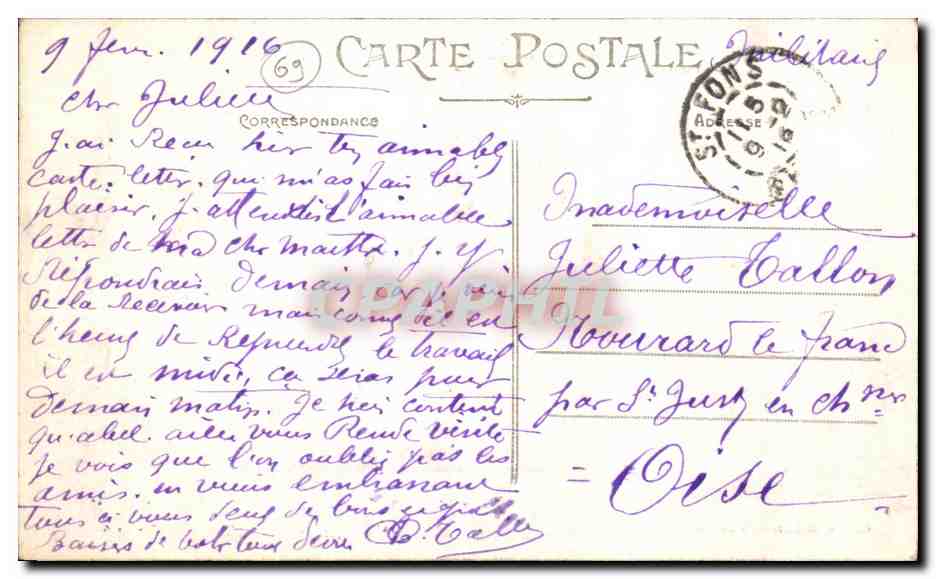 9 fevr. 1916
69
CARTE POSTALE
Militaire
cher Juliette
CORRESPONDANCE
ADRESSE
ST. FONS
J.ai Recu hier ton aimable
carte. letre. qui m'as fais bien
plaisir, j.attendais l'aimable
lettre de ma cher Marthe. J.y
Répondrais Demain car je viens
de la recevoir mais comme
l'heure de Reprendre le travail
il en midi, ça seras pour
Demain matin. Je suis content
qu.abel. ailes vous Rendre visite
je vois que l'on oublie pas les
amis. en vous embrassant
tous
Baisers de votre
Mademoiselle
Juliette Tallon
Nourard le franc
par St Just en chssée
= Oise =
CPAPHIL